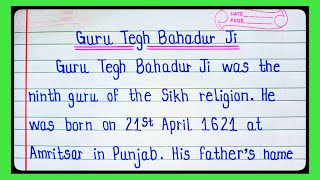 DATE
PAGE
Guru Tegh Bahadur Ji
Guru Tegh Bahadur Ji was the
ninth guru of the Sikh religion. He
was born on 21st April 1621 at
Amritsar in Punjab. His father's name